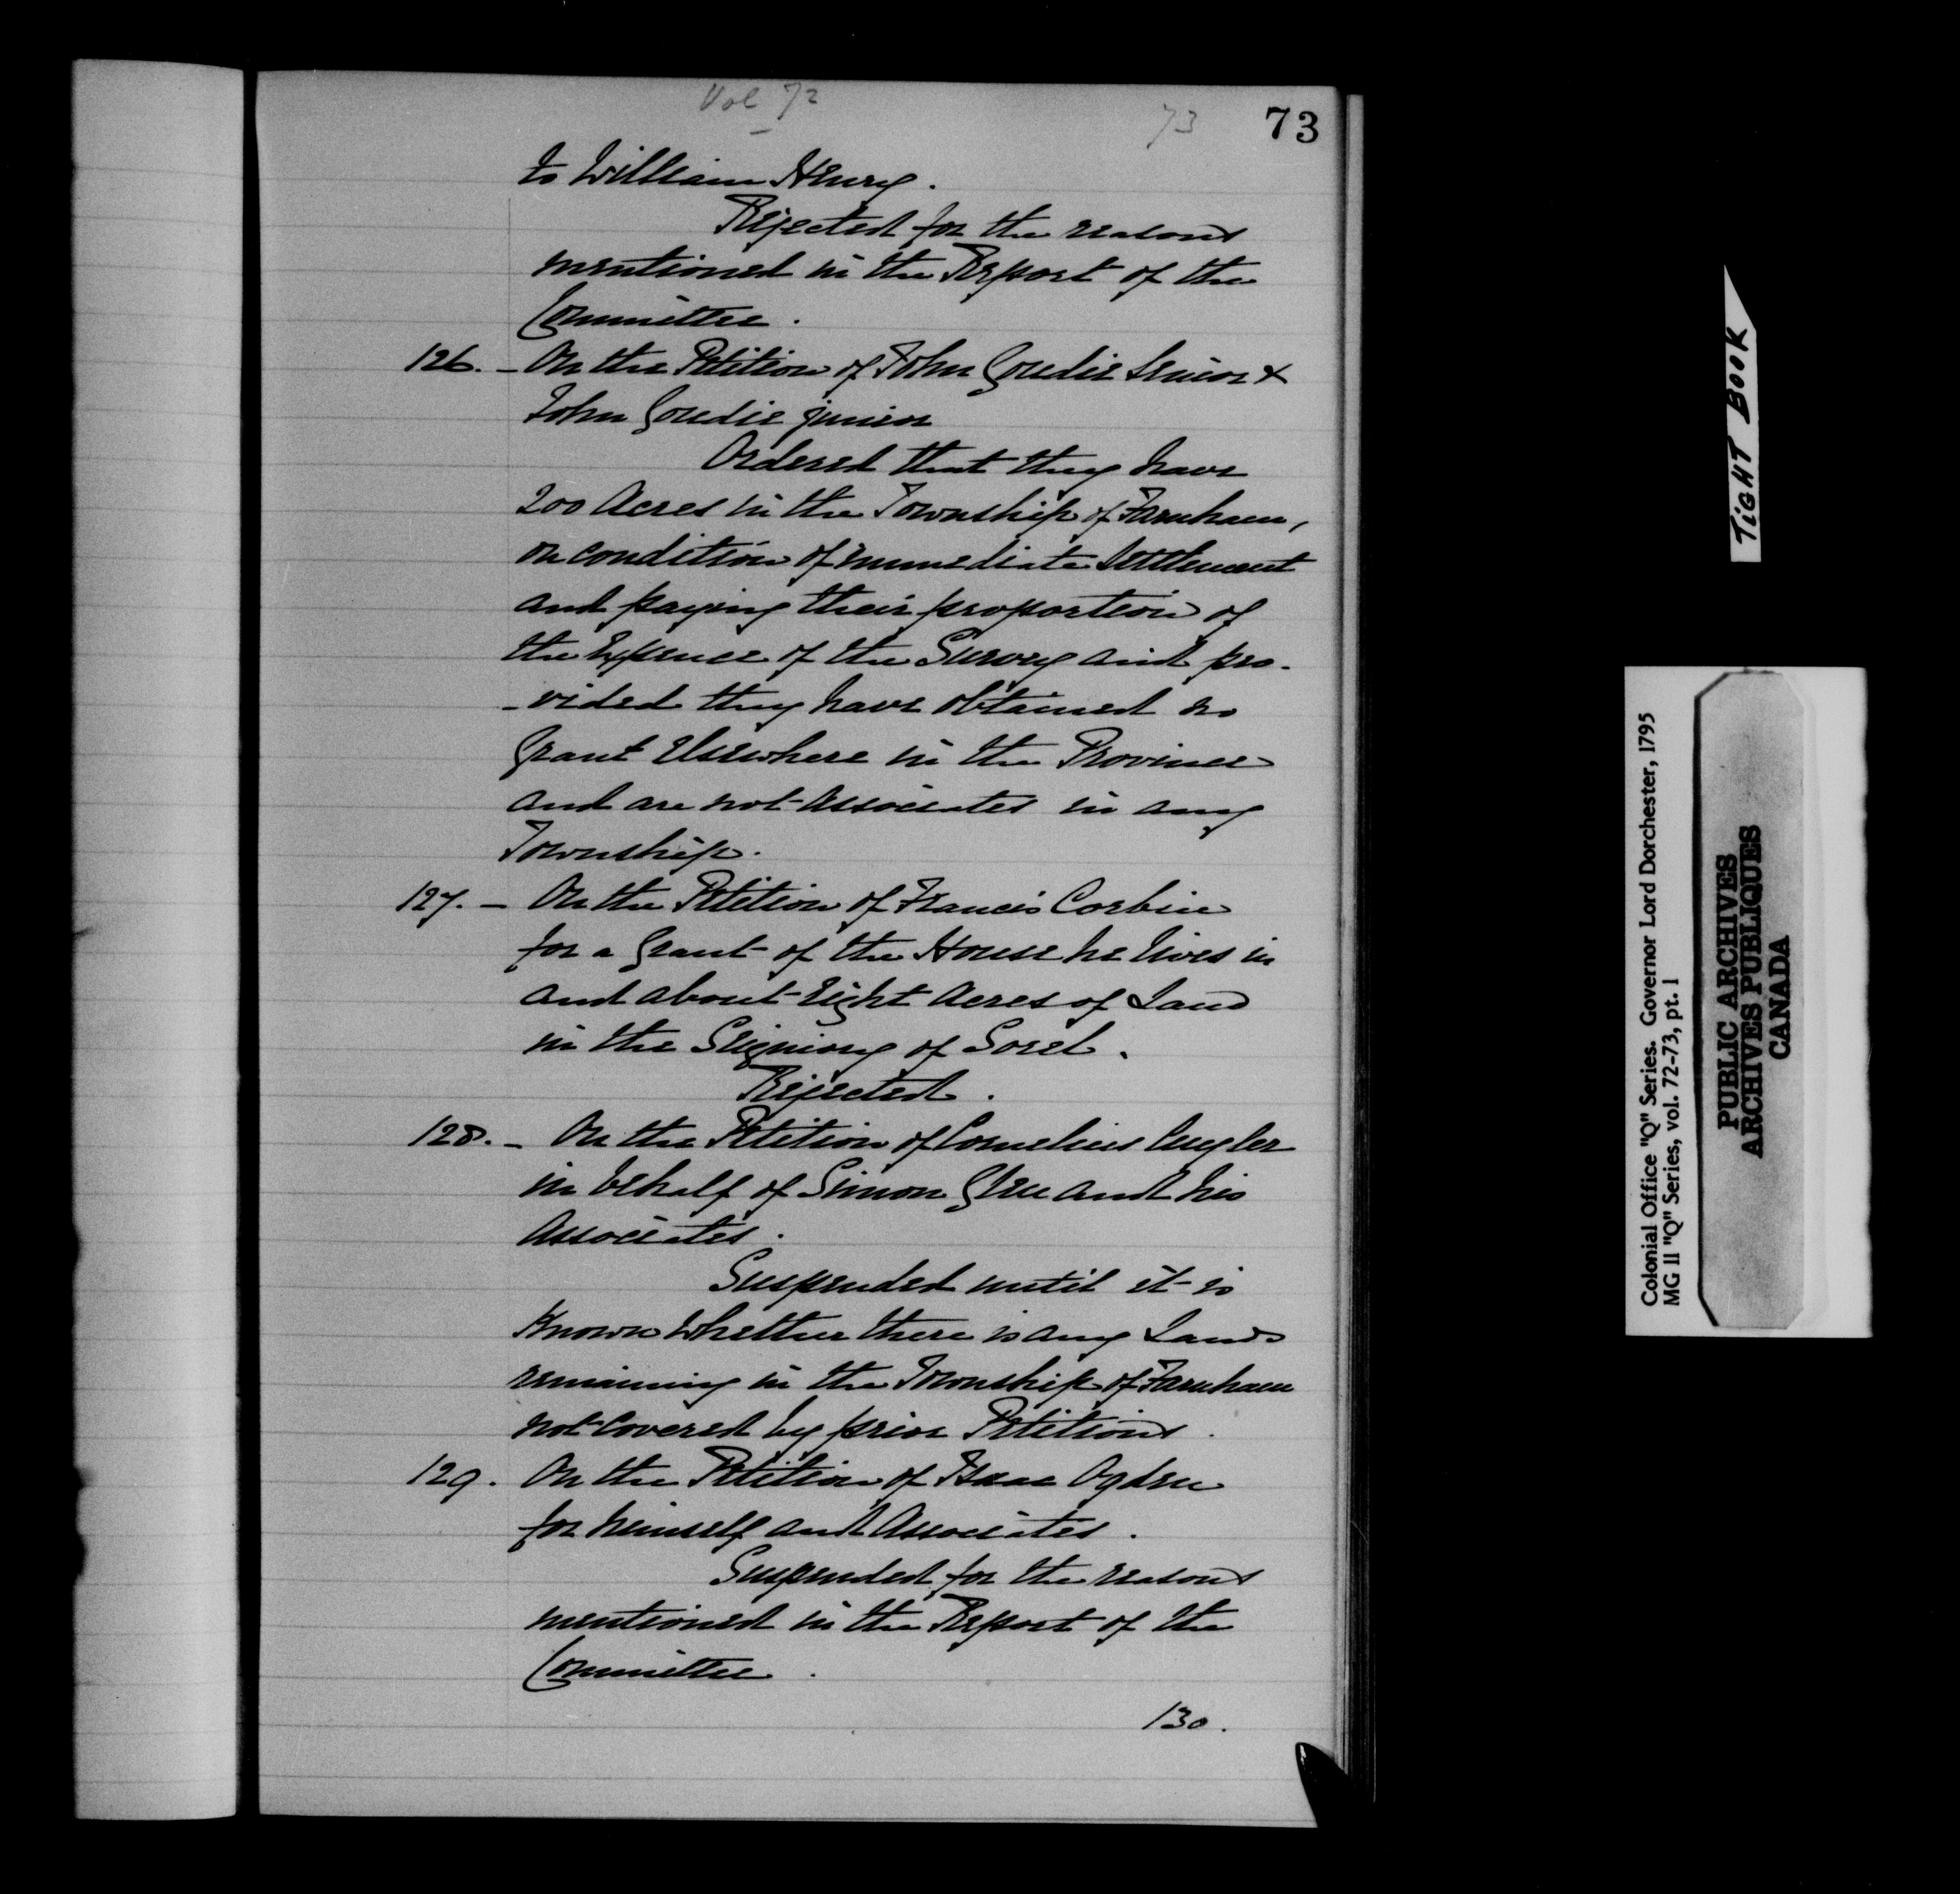 Vol 72
73
73
to William Henry.
Rejected for the reasons
mentioned in the Report of the
Committee.
126. - On the Petition of John Goudie Senior &
John Goudie junior
Ordered that they have
200 Acres in the Township of Farnham,
on condition of immediate Settlement
and paying their proportion of
the Expence of the Survey and pro-
-vided they have obtained no
Grant Elsewhere in the Province
and are not Associates in any
Township.
127. - On the Petition of Francis Corbin
for a Grant of the House he lives in
and about Eight Acres of Land
in the Seigniory of Sorel.
Rejected.
128. - On the Petition of Cornelius
in behalf of Simon and his
Associates.
Suspended until it is
Known whether there is any Lands
remaining in the Township of Farnham
not covered by prior Petitions.
129. On the Petition of Isaac Ogden
for himself and Associates.
Suspended for the reasons
mentioned in the Report of the
Committee.
130.
TIGHT BOOK
Colonial Office "Q" Series. Governor Lord Dorchester, 1795
MG 11 "Q" Series, vol. 72-73, pt. 1
PUBLIC ARCHIVES
ARCHIVES PUBLIQUES
CANADA